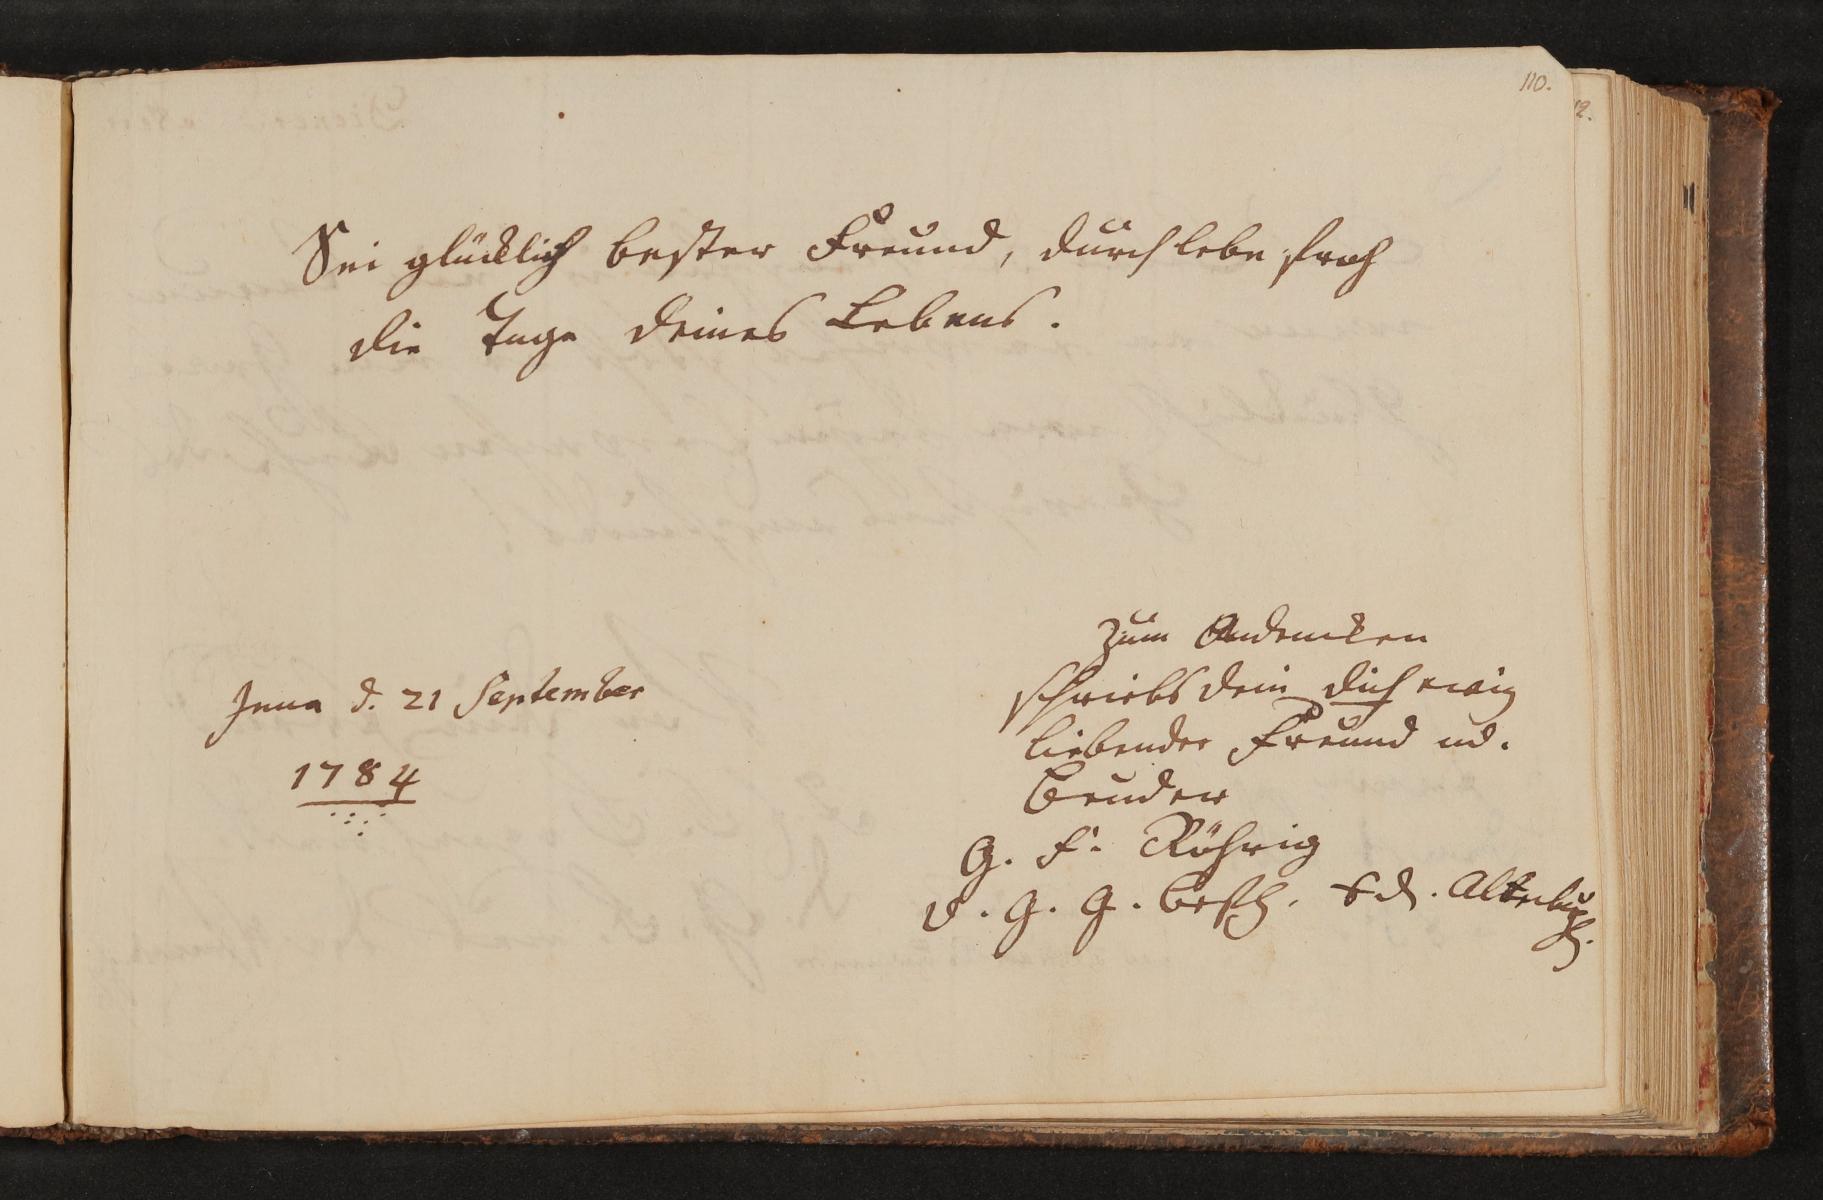 110.
12.
Sei glücklich bester Freund, durch lebe froh
die Tage deines Lebens.
Jena d. 21 September
1784
Zum Andencken
schriebs dein dich ewig
liebender Freund ud.
Bruder
G. F. Röhrig
d. G. G. Befl.